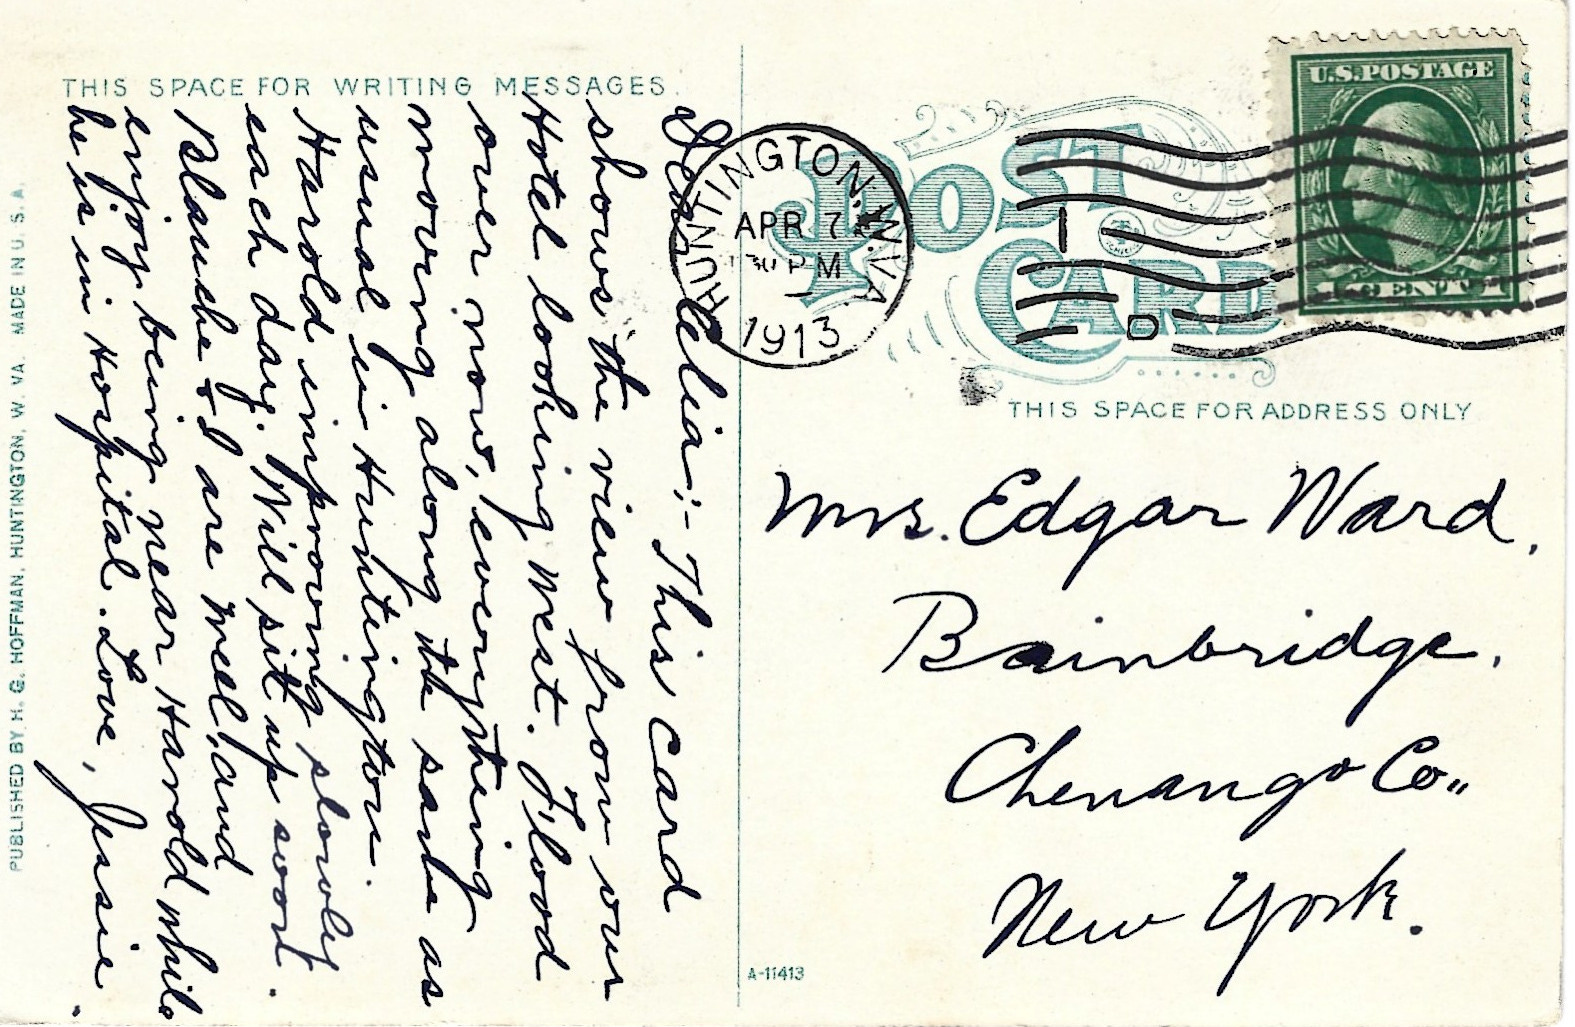 THIS SPACE FOR WRITING MESSAGES.
Dear Celia:- This card
shows the view from our
Hotel looking West. Flood
over now, everything
moving along the same as
usual in Huntington.
Harold improving slowly
each day. Will sit up soon.
Blanche & I are well, and
enjoy being near Harold while
he is in Hospital. Love, Jessie.
PUBLISHED BY H. G. HOFFMAN, HUNTINGTON, W. VA. MADE IN U. S. A.
HUNTINGTON, W. VA.
APR 7
30 PM
1913
1
D
POST
CARD
U.S. POSTAGE
1 CENT 1
THIS SPACE FOR ADDRESS ONLY
Mrs. Edgar Ward,
Bainbridge,
Chenango Co.,
New York.
A-11413